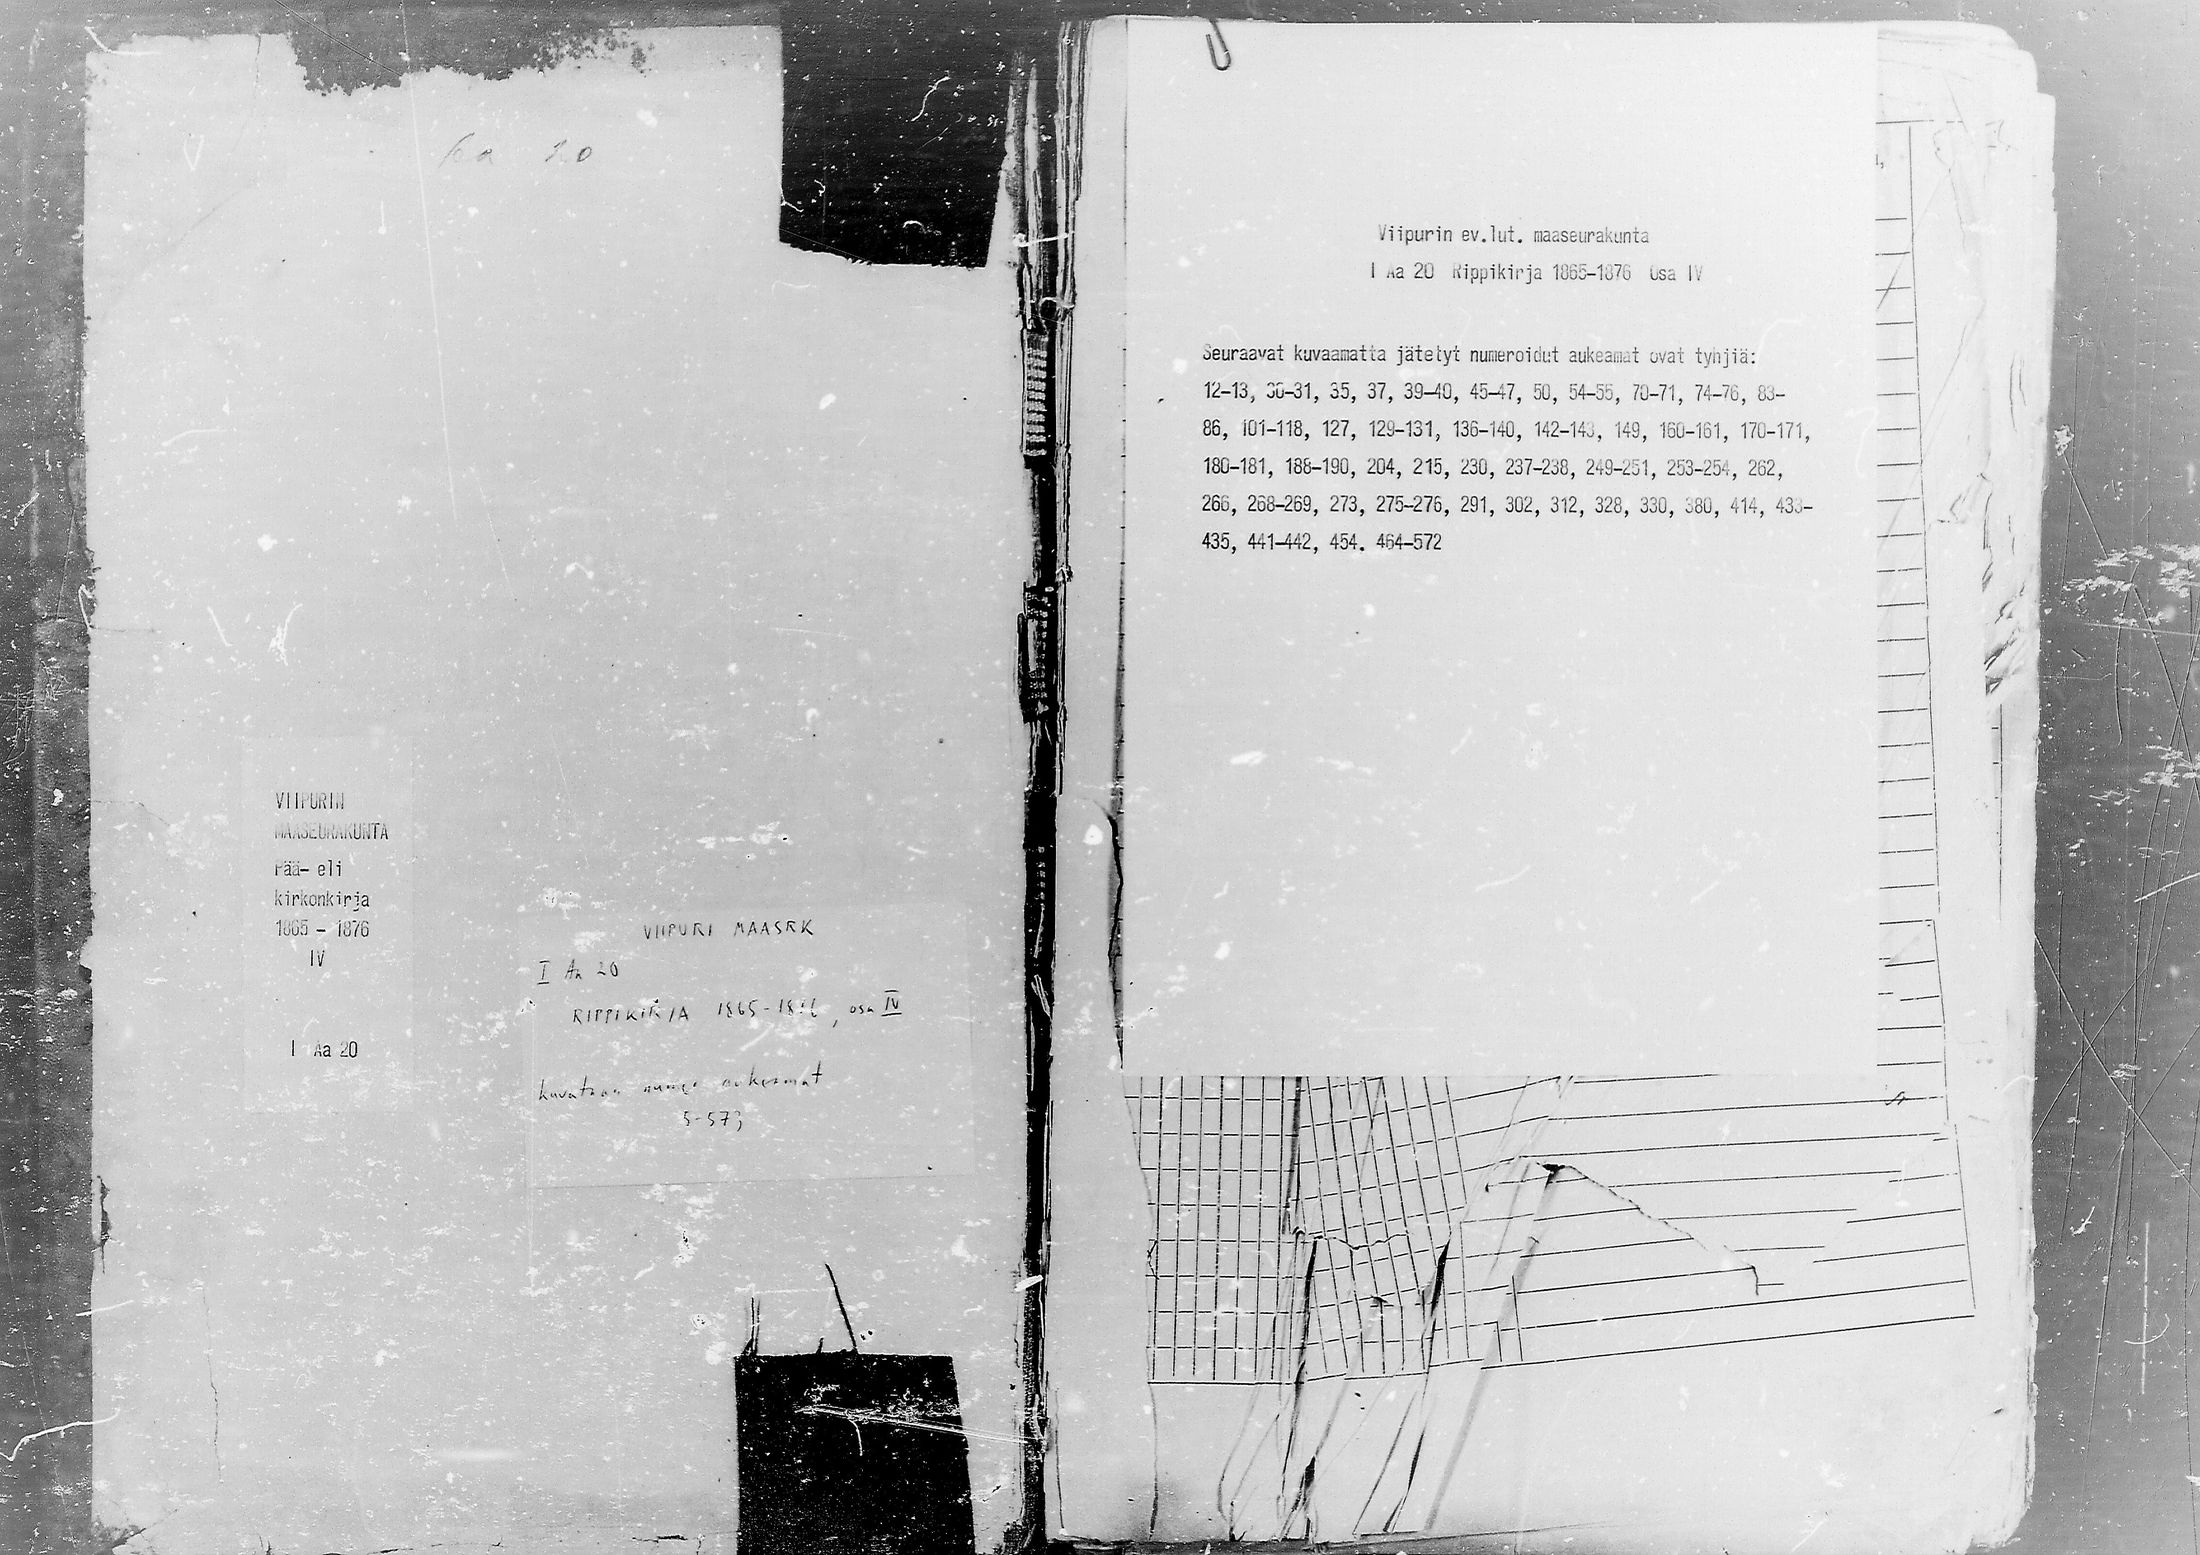 Aa 20
VIIPURIN
MAASEURAKUNTA
Pää- eli
kirkonkirja
1865 - 1876
IV
I Aa 20
VIIPURI MAASRK
I Aa 20
RIPPIKIRJA 1865-1876, osa IV
kuvataan aukeamat
5-573
Viipurin ev.lut. maaseurakunta
I Aa 20 Rippikirja 1865-1876 Osa IV
Seuraavat kuvaamatta jätetyt numeroidut aukeamat ovat tyhjiä:
12-13, 30-31, 35, 37, 39-40, 45-47, 50, 54-55, 70-71, 74-76, 83-
86, 101-118, 127, 129-131, 136-140, 142-143, 149, 160-161, 170-171,
180-181, 188-190, 204, 215, 230, 237-238, 249-251, 253-254, 262,
266, 268-269, 273, 275-276, 291, 302, 312, 328, 330, 380, 414, 433-
435, 441-442, 454. 464-572